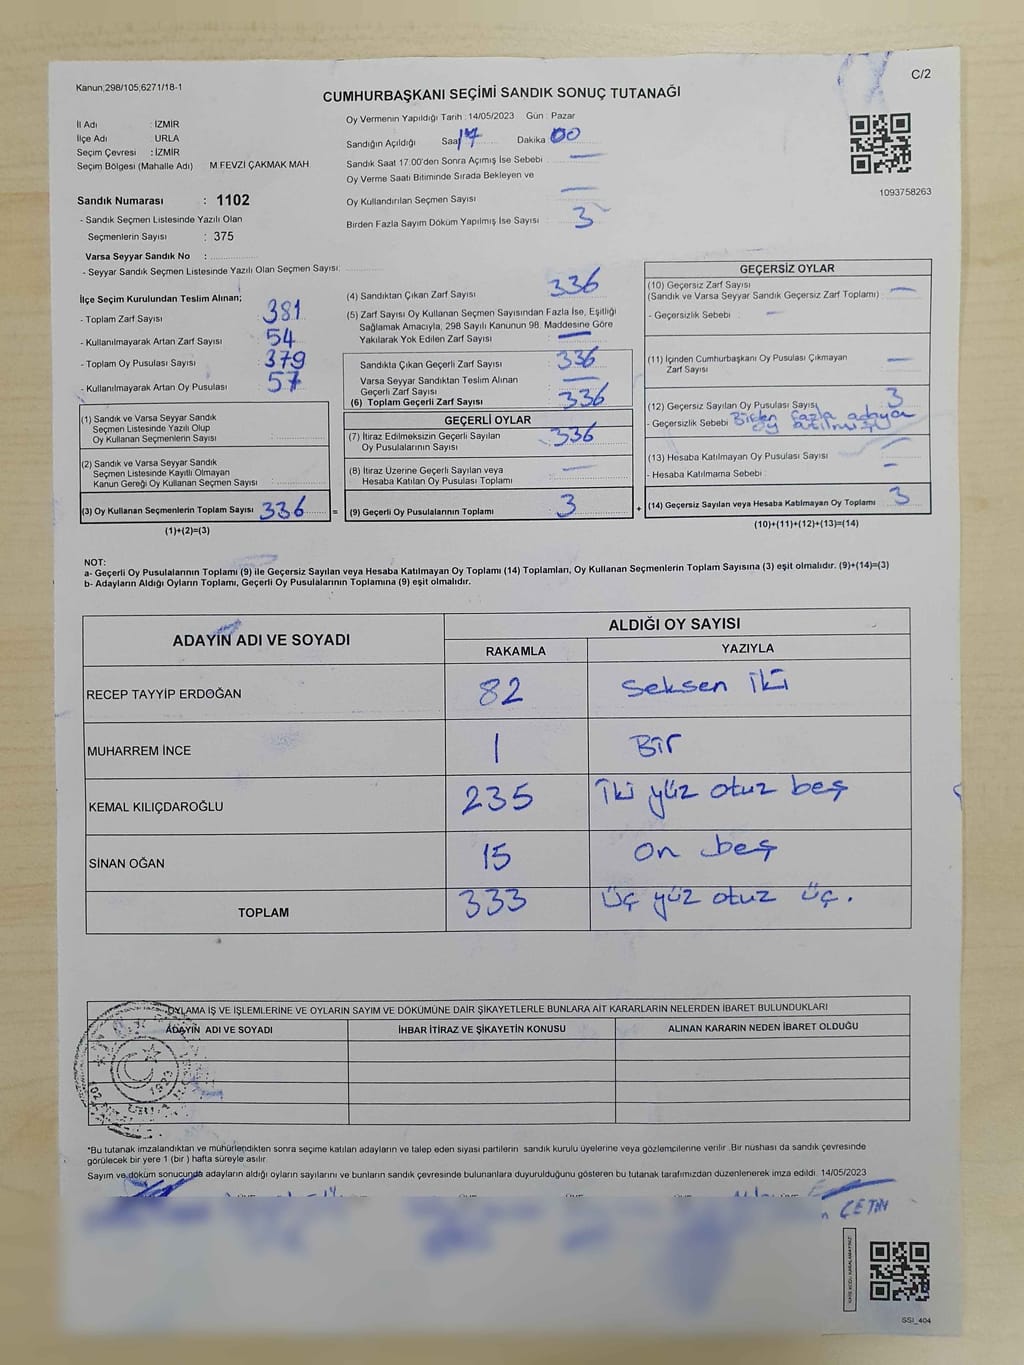 Kanun;298/105;6271/18-1
C/2
CUMHURBAŞKANI SEÇİMİ SANDIK SONUÇ TUTANAĞI
İl Adı : İZMİR
İlçe Adı : URLA
Seçim Çevresi : İZMİR
Seçim Bölgesi (Mahalle Adı) M.FEVZİ ÇAKMAK MAH.
Sandık Numarası : 1102
- Sandık Seçmen Listesinde Yazılı Olan
Seçmenlerin Sayısı : 375
Varsa Seyyar Sandık No :
- Seyyar Sandık Seçmen Listesinde Yazılı Olan Seçmen Sayısı:
Oy Vermenin Yapıldığı Tarih : 14/05/2023 Gün : Pazar
Sandığın Açıldığı Saat 17 Dakika 00
Sandık Saat 17.00'den Sonra Açımış İse Sebebi : —
Oy Verme Saati Bitiminde Sırada Bekleyen ve
Oy Kullandırılan Seçmen Sayısı : —
Birden Fazla Sayım Döküm Yapılmış İse Sayısı : 3
1093758263
İlçe Seçim Kurulundan Teslim Alınan;
- Toplam Zarf Sayısı : 381
- Kullanılmayarak Artan Zarf Sayısı : 54
- Toplam Oy Pusulası Sayısı : 379
- Kullanılmayarak Artan Oy Pusulası : 57
(1) Sandık ve Varsa Seyyar Sandık
Seçmen Listesinde Yazılı Olup
Oy Kullanan Seçmenlerin Sayısı :
(2) Sandık ve Varsa Seyyar Sandık
Seçmen Listesinde Kayıtlı Olmayan
Kanun Gereği Oy Kullanan Seçmen Sayısı :
(3) Oy Kullanan Seçmenlerin Toplam Sayısı 336
(1)+(2)=(3)
=
(4) Sandıktan Çıkan Zarf Sayısı : 336
(5) Zarf Sayısı Oy Kullanan Seçmen Sayısından Fazla İse, Eşitliği
Sağlamak Amacıyla, 298 Sayılı Kanunun 98. Maddesine Göre
Yakılarak Yok Edilen Zarf Sayısı : —
Sandıkta Çıkan Geçerli Zarf Sayısı : 336
Varsa Seyyar Sandıktan Teslim Alınan
Geçerli Zarf Sayısı : —
(6) Toplam Geçerli Zarf Sayısı : 336
GEÇERLİ OYLAR
(7) İtiraz Edilmeksizin Geçerli Sayılan
Oy Pusulalarının Sayısı : 336
(8) İtiraz Üzerine Geçerli Sayılan veya
Hesaba Katılan Oy Pusulası Toplamı : —
(9) Geçerli Oy Pusulalarının Toplamı : 3
+
GEÇERSİZ OYLAR
(10) Geçersiz Zarf Sayısı
(Sandık ve Varsa Seyyar Sandık Geçersiz Zarf Toplamı) : —
- Geçersizlik Sebebi : —
(11) İçinden Cumhurbaşkanı Oy Pusulası Çıkmayan
Zarf Sayısı : —
(12) Geçersiz Sayılan Oy Pusulası Sayısı 3
- Geçersizlik Sebebi Birden fazla adaya
oy atılmış
(13) Hesaba Katılmayan Oy Pusulası Sayısı : —
- Hesaba Katılmama Sebebi : —
(14) Geçersiz Sayılan veya Hesaba Katılmayan Oy Toplamı 3
(10)+(11)+(12)+(13)=(14)
NOT:
a- Geçerli Oy Pusulalarının Toplamı (9) ile Geçersiz Sayılan veya Hesaba Katılmayan Oy Toplamı (14) Toplamları, Oy Kullanan Seçmenlerin Toplam Sayısına (3) eşit olmalıdır. (9)+(14)=(3)
b- Adayların Aldığı Oyların Toplamı, Geçerli Oy Pusulalarının Toplamına (9) eşit olmalıdır.
ADAYIN ADI VE SOYADI
ALDIĞI OY SAYISI
RAKAMLA YAZIYLA
RECEP TAYYİP ERDOĞAN 82 Seksen iki
MUHARREM İNCE 1 Bir
KEMAL KILIÇDAROĞLU 235 İki yüz otuz beş
SİNAN OĞAN 15 on beş
TOPLAM 333 Üç yüz otuz üç.
OYLAMA İŞ VE İŞLEMLERİNE VE OYLARIN SAYIM VE DÖKÜMÜNE DAİR ŞİKAYETLERLE BUNLARA AİT KARARLARIN NELERDEN İBARET BULUNDUKLARI
ADAYIN ADI VE SOYADI İHBAR İTİRAZ VE ŞİKAYETİN KONUSU ALINAN KARARIN NEDEN İBARET OLDUĞU
1923
*Bu tutanak imzalandıktan ve mühürlendikten sonra seçime katılan adayların ve talep eden siyasi partilerin sandık kurulu üyelerine veya gözlemcilerine verilir. Bir nüshası da sandık çevresinde
görülecek bir yere 1 (bir ) hafta süreyle asılır.
Sayım ve döküm sonucunda adayların aldığı oyların sayılarını ve bunların sandık çevresinde bulunanlara duyurulduğunu gösteren bu tutanak tarafımızdan düzenlenerek imza edildi. 14/05/2023
ÇETİN
SSI_404